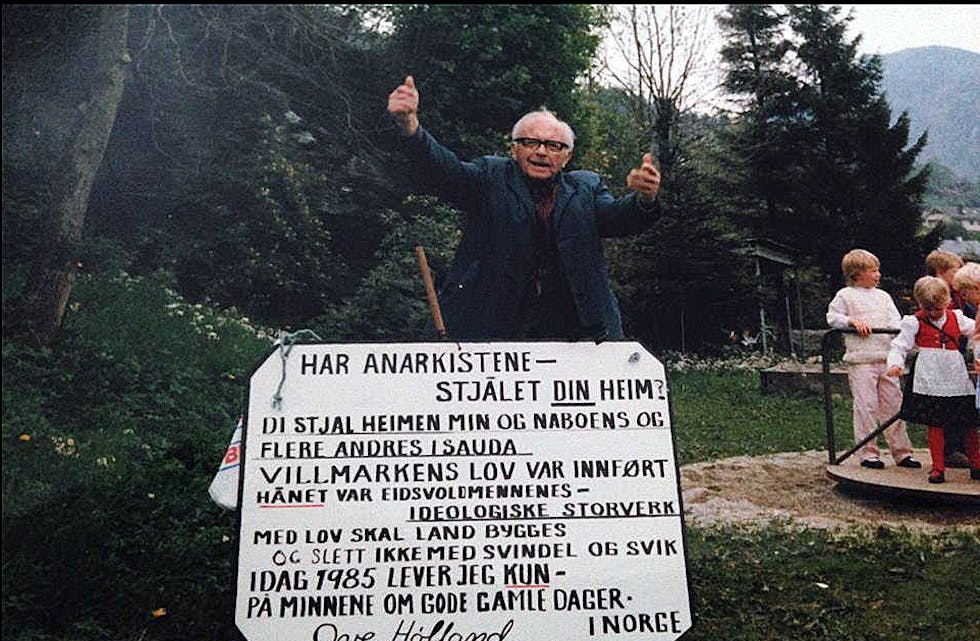 HAR ANARKISTENE —
STJÄLET DIN HEIM?
DI STJAL HEIMEN MIN OG NABOENS OG
FLERE ANDRES I SAUDA
VILLMARKENS LOV VAR INNFØRT
HÅNET VAR EIDSVOLDMENNENES –
IDEOLOGISKE STORVERK
MED LOV SKAL LAND BYGGES
OG SLETT IKKE MED SVINDEL OG SVIK
I DAG 1985 LEVER JEG KUN –
PÅ MINNENE OM GODE GAMLE DAGER.
I NORGE
Ove Hölland